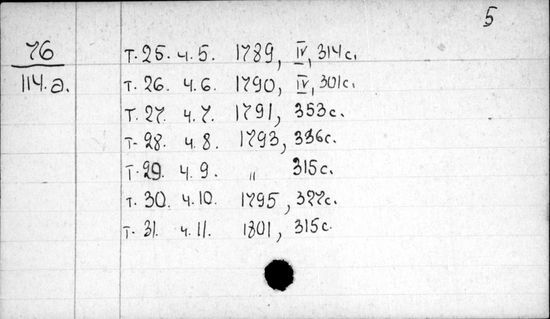 5
76 т. 25. ч. 5. 1789, IV, 314 с.
114.а. т. 26. ч. 6. 1790, IV, 301 с.
т. 27. ч. 7. 1791, 353 с.
т. 28. ч. 8. 1793, 336 с.
т. 29. ч. 9. " 315 с.
т. 30. ч. 10. 1795, 327 с.
т. 31. ч. 11. 1801, 315 с.